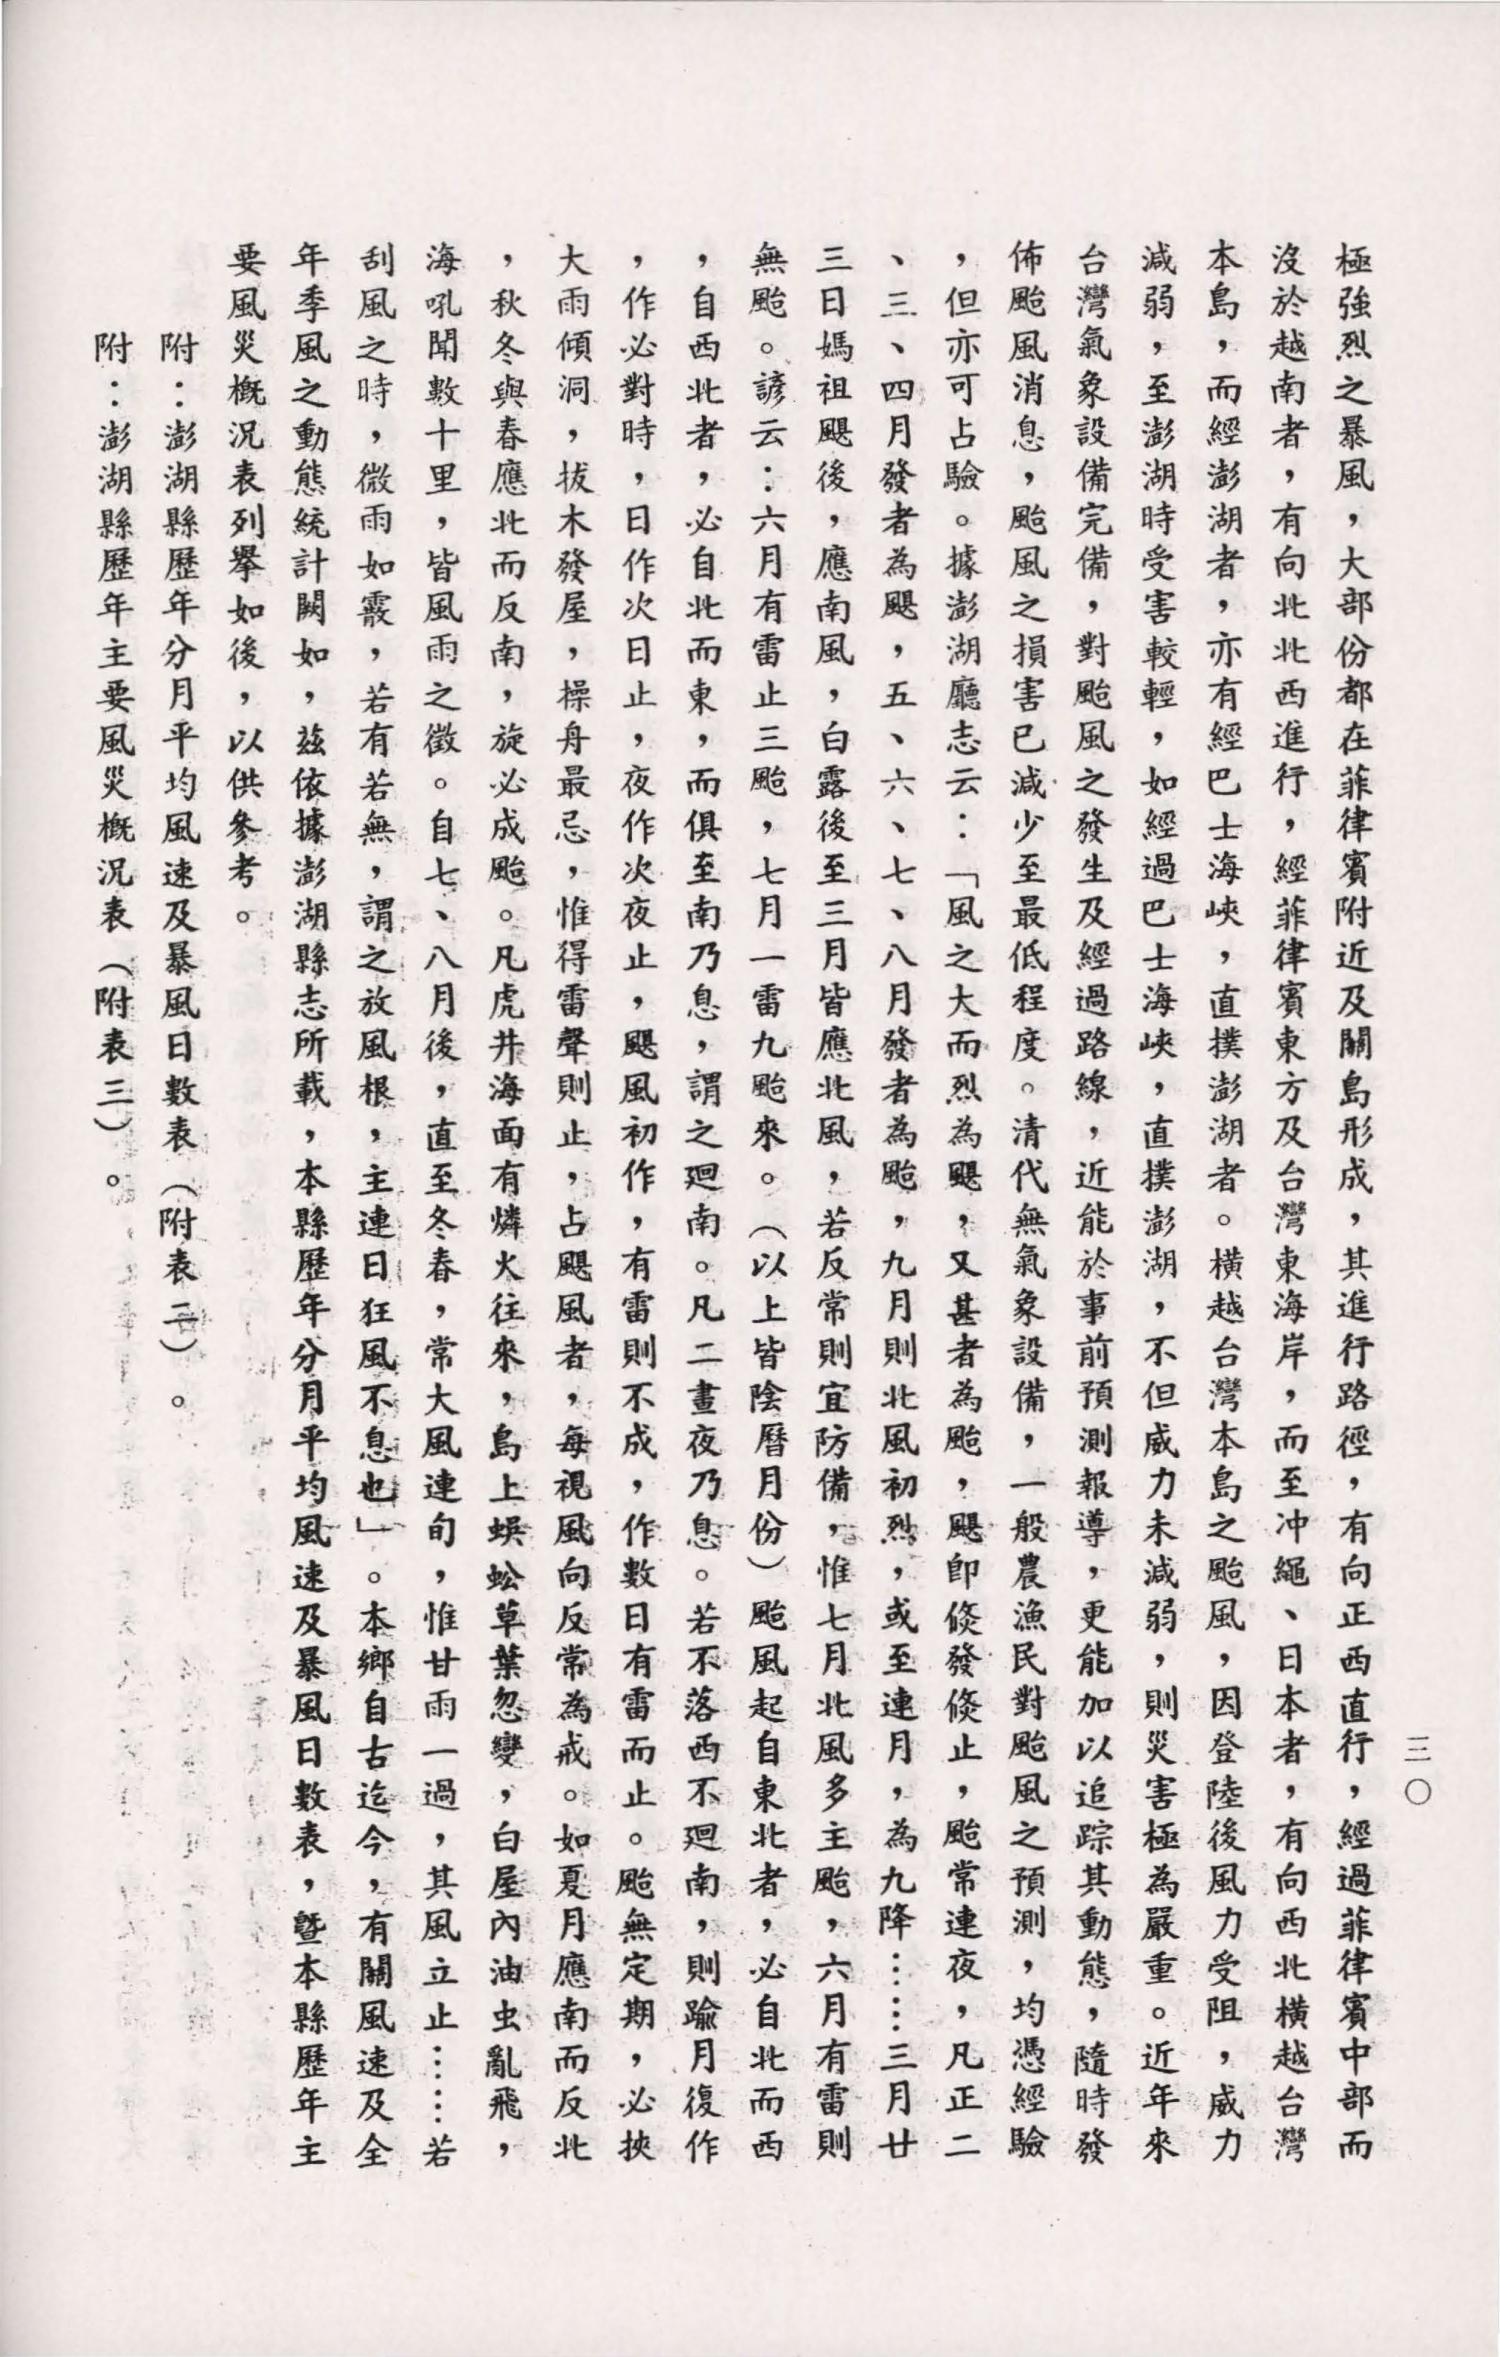 三〇
極強烈之暴風，大部份都在菲律賓附近及關島形成，其進行路徑，有向正西直行，經過菲律賓中部而
沒於越南者，有向北北西進行，經菲律賓東方及台灣東海岸，而至冲繩、日本者，有向西北橫越台灣
本島，而經澎湖者，亦有經巴士海峽，直撲澎湖者。橫越台灣本島之颱風，因登陸後風力受阻，威力
減弱，至澎湖時受害較輕，如經過巴士海峽，直撲澎湖，不但威力未減弱，則災害極為嚴重。近年來
台灣氣象設備完備，對颱風之發生及經過路線，近能於事前預測報導，更能加以追踪其動態，隨時發
佈颱風消息，颱風之損害已減少至最低程度。清代無氣象設備，一般農漁民對颱風之預測，均憑經驗
，但亦可占驗。據澎湖廳志云：「風之大而烈為颶，又甚者為颱，颶卽倐發倐止，颱常連夜，凡正二
、三、四月發者為颶，五、六、七、八月發者為颱，九月則北風初烈，或至連月，為九降……三月廿
三日媽祖颶後，應南風，白露後至三月皆應北風，若反常則宜防備，惟七月北風多主颱，六月有雷則
無颱。諺云：六月有雷止三颱，七月一雷九颱來。（以上皆陰曆月份）颱風起自東北者，必自北而西
，自西北者，必自北而東，而俱至南乃息，謂之廻南。凡二晝夜乃息。若不落西不廻南，則踰月復作
，作必對時，日作次日止，夜作次夜止，颶風初作，有雷則不成，作數日有雷而止。颱無定期，必挾
大雨傾洞，拔木發屋，操舟最忌，惟得雷聲則止，占颶風者，每視風向反常為戒。如夏月應南而反北
，秋冬與春應北而反南，旋必成颱。凡虎井海面有燐火往來，島上蜈蚣草葉忽變，白屋內油虫亂飛，
海吼聞數十里，皆風雨之徵。自七、八月後，直至冬春，常大風連旬，惟甘雨一過，其風立止……若
刮風之時，微雨如霰，若有若無，謂之放風根，主連日狂風不息也」。本鄉自古迄今，有關風速及全
年季風之動態統計闕如，茲依據澎湖縣志所載，本縣歷年分月平均風速及暴風日數表，暨本縣歷年主
要風災概況表列舉如後，以供參考。
附：澎湖縣歷年分月平均風速及暴風日數表（附表二）。
附：澎湖縣歷年主要風災概況表（附表三）。